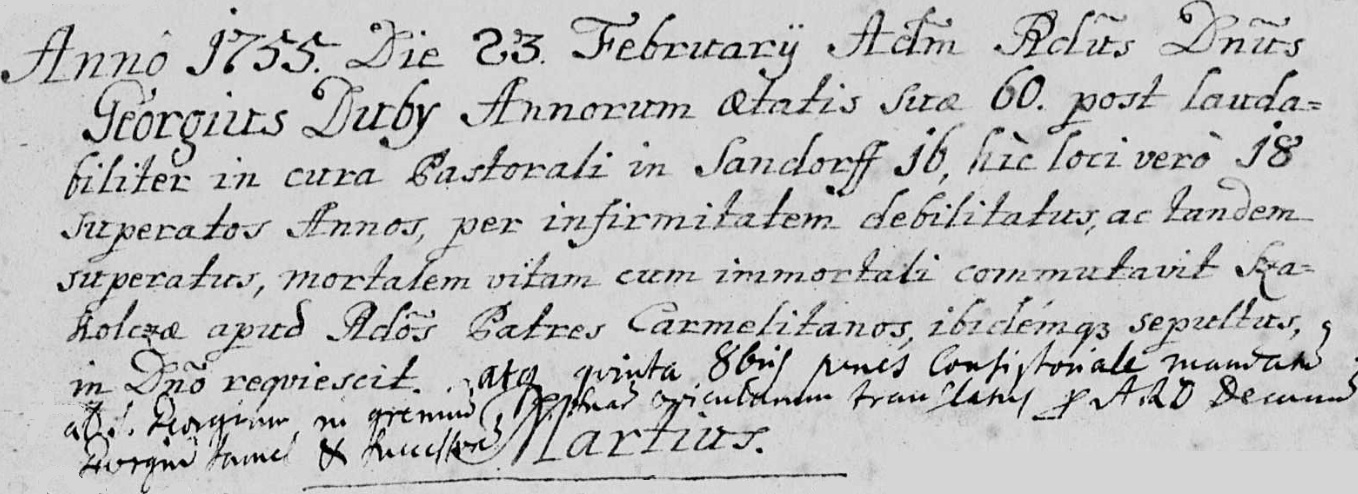 Anno 1755. Die 23. Februarÿ Adm̃ Rdũs Dnũs
Georgius Duby Annorum ætatis suæ 60. post lauda=
biliter in cura Pastorali in Sandorff 16, hìc loci verò 18
superatos Annos, per infirmitatem debilitatus, ac tandem
superatus, mortalem vitam cum immortali commutavit Sza=
kolczæ apud Rdõs Patres Carmelitanos, ibidémqꝫ sepultus,
in Dnõ reqviescit. atqꝫ quinta 8bris penes Consistoriale mandatũ
ad S. Georgium in gremiũ ovicularum translatus ꝑ ARD Decanũ
Georgiũ & Successorẽ
Martius.